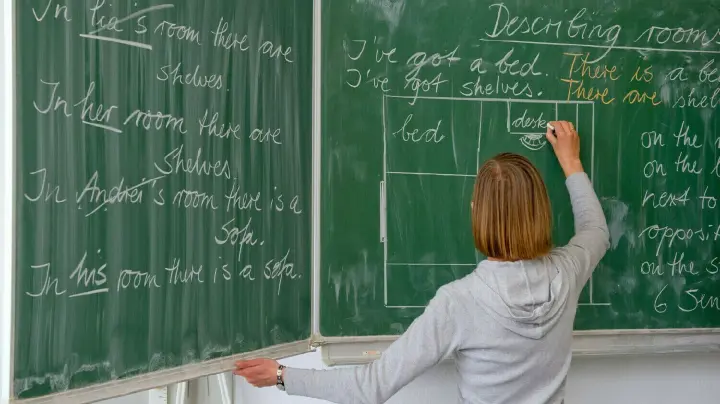 In Lia's room there are
shelves.
In her room there are
shelves.
In Andrei's room there is a
sofa.
In his room there is a sofa.
Describing rooms
I've got a bed. There is a be
I've got shelves. There are shel
bed
desk
on the
on the
next to
opposit
on the s
6 Sen